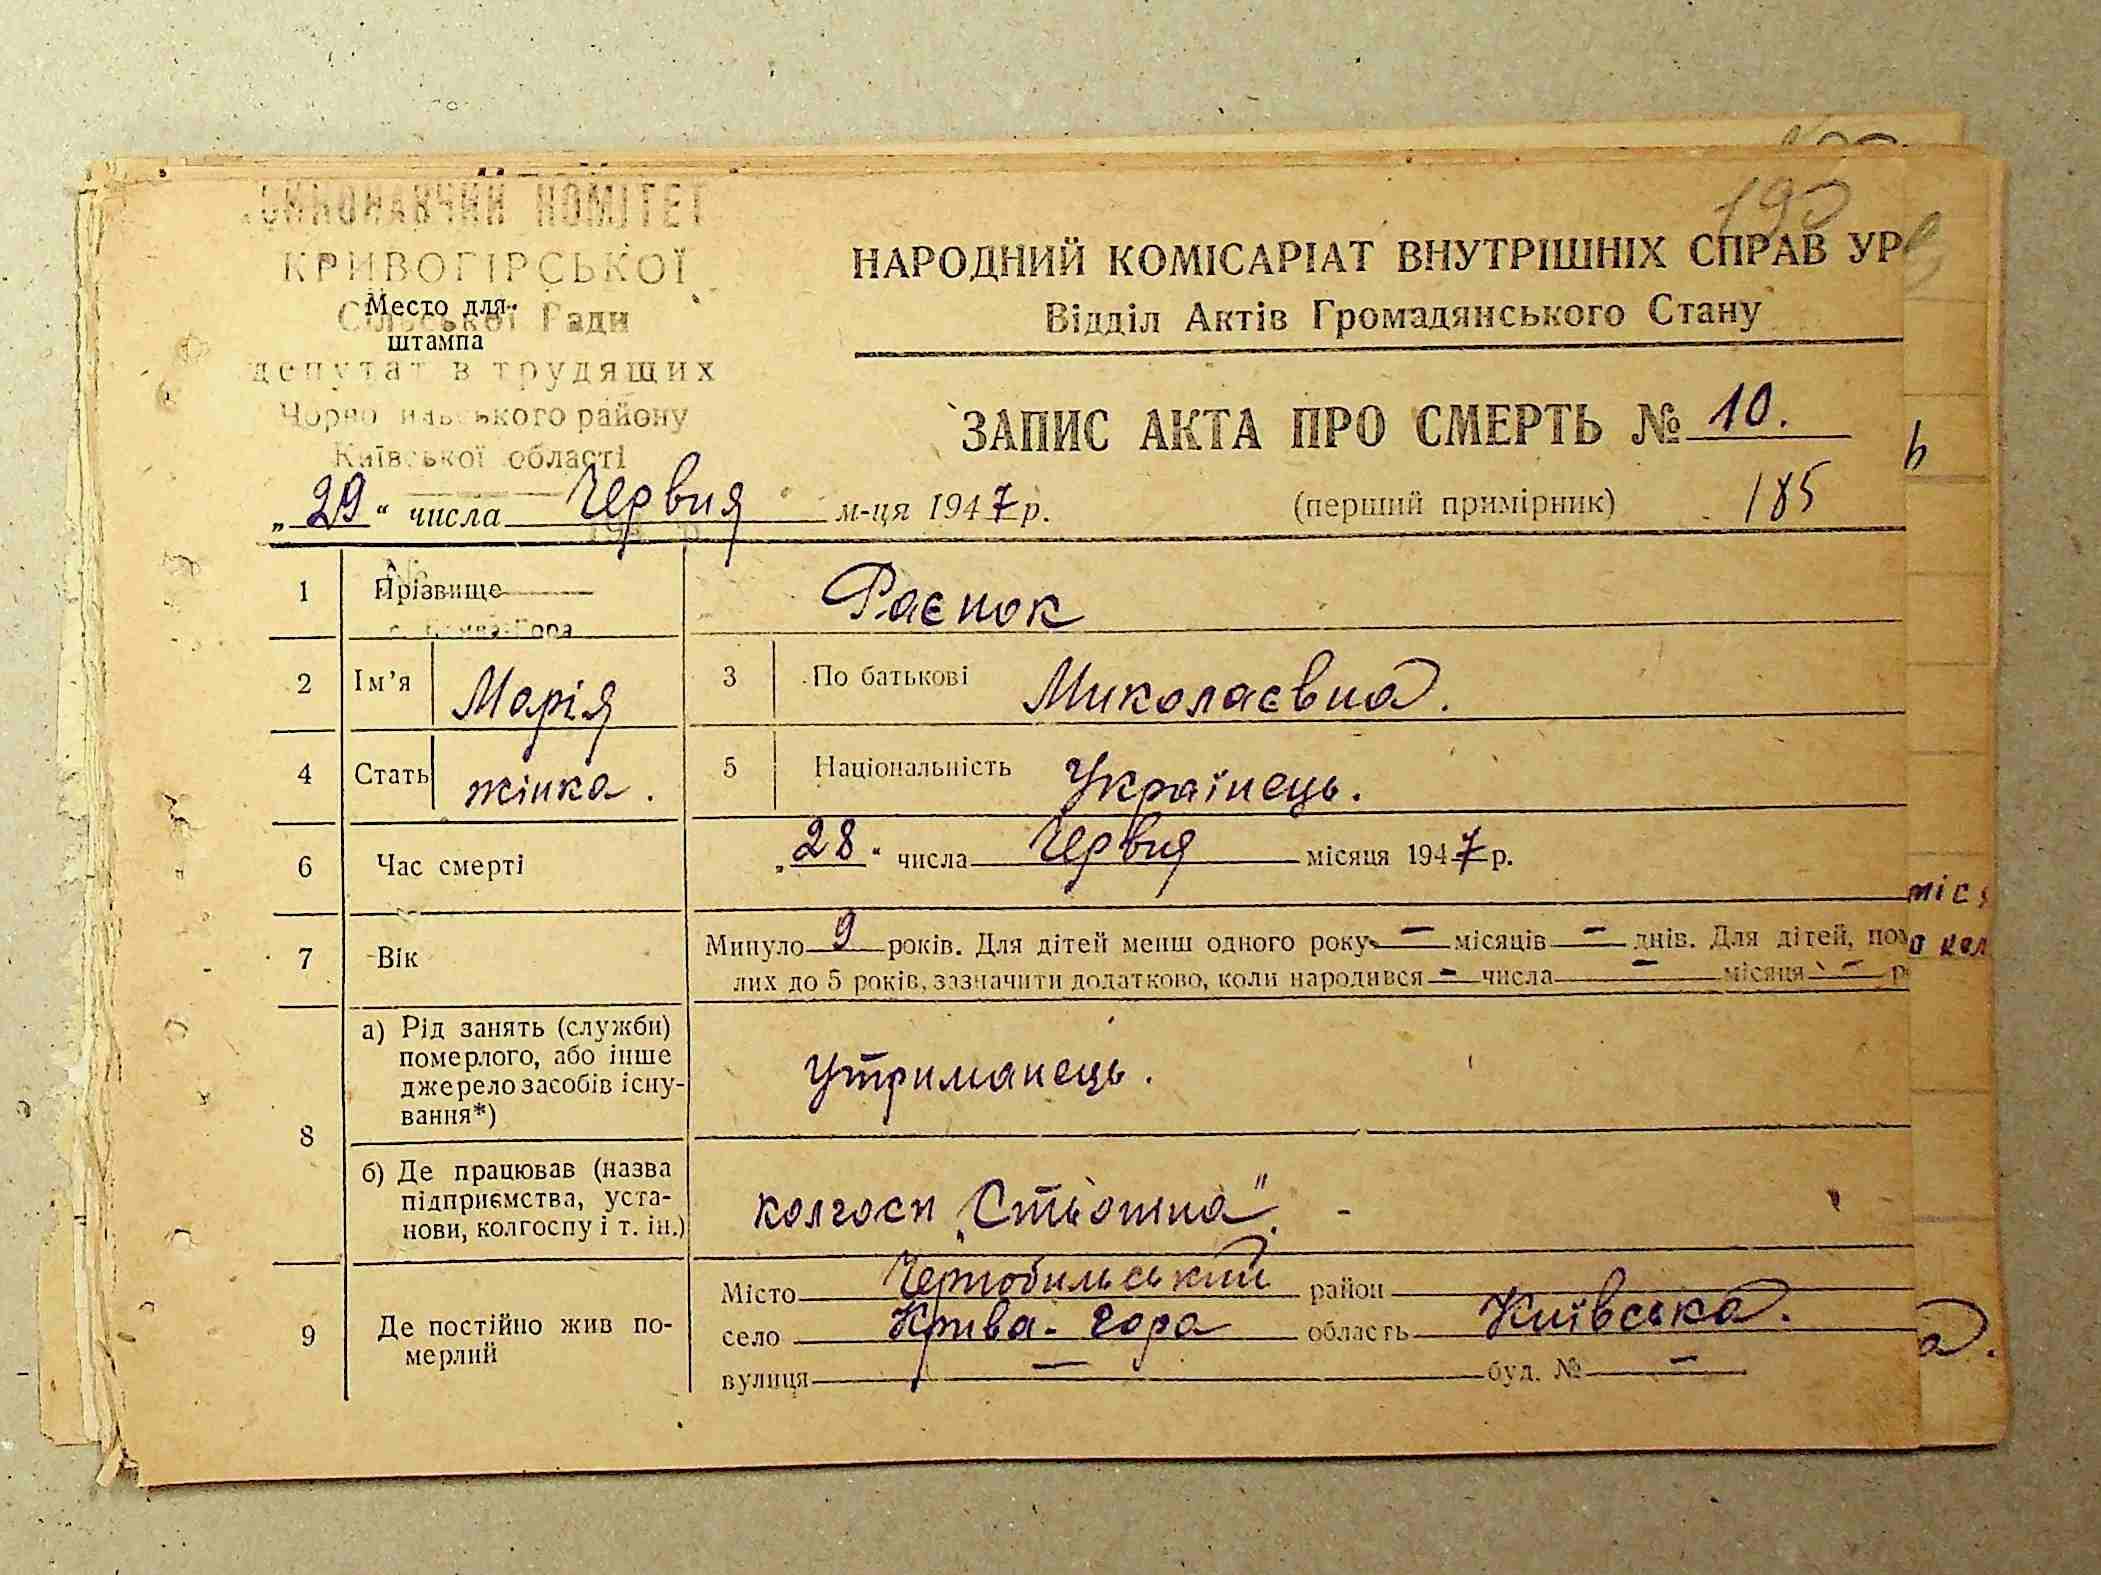 ВИКОНАВЧИЙ КОМІТЕТ
КРИВОГІРСЬКОЇ
Сільської Ради
Место для
штампа
депутатів трудящих
района району
Київської області
193
НАРОДНИЙ КОМІСАРІАТ ВНУТРІШНІХ СПРАВ УР
Відділ Актів Громадянського Стану
ЗАПИС АКТА ПРО СМЕРТЬ № 10.
„29“ числа Червня м-ця 1947 р.
(перший примірник) 185
1 Прізвище Раєнок
2 Ім'я Марія 3 По батькові Миколаєвна.
4 Стать жінка. 5 Національність Українець.
6 Час смерті „28“ числа Червня місяця 1947 р.
7 Вік Минуло 9 років. Для дітей менш одного року — місяців — днів. Для дітей, пом
лих до 5 років, зазначити додатково, коли народився — числа — місяця — р
8 а) Рід занять (служби)
померлого, або інше
джерело засобів існу-
вання*)
Утриманець.
б) Де працював (назва
підприємства, уста-
нови, колгоспу і т. ін.)
колгосп „Стьошна". -
9 Де постійно жив по-
мерлий
Місто Чернобильський район
село Крива-Гора область Київська.
вулиця — буд. № —